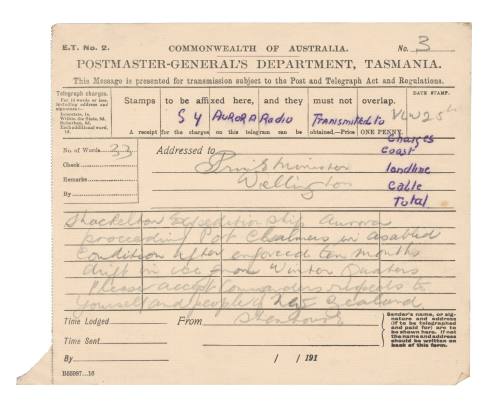 E.T. No. 2.
COMMONWEALTH OF AUSTRALIA.
No. 3
POSTMASTER-GENERAL'S DEPARTMENT, TASMANIA.
This Message is presented for transmission subject to the Post and Telegraph Act and Regulations.
Telegraph charges.
For 16 words or less, including address and signature:—
Stamps to be affixed here, and they must not overlap.
DATE STAMP.
Sy Aurora Radio Transmitted to
A receipt for the charges on this telegram can be obtained—Price ONE PENNY.
No. of Words 33
Check
Remarks
By
Addressed to
Prime Minister
Wellington
Charges
Coast
landline
Cable
Total
Shackleton Expedition Ship Aurora
proceeding Port Chalmers in disabled
Condition after enforced ten months
drift in ice from Winter Quarters
Please accept Commanders respects to
Yourself and people of New Zealand
Time Lodged
From Stenhouse
Sender's name, or signature and address (if to be telegraphed and paid for) are to be shown here. If not the name and address should be written on back of this form.
Time Sent
By
/ / 191
B55997.—16